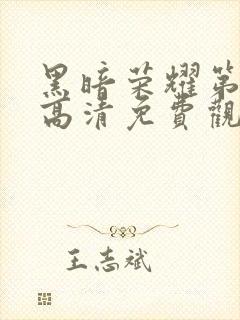 黑暗荣耀第
高清免費觀
王志斌